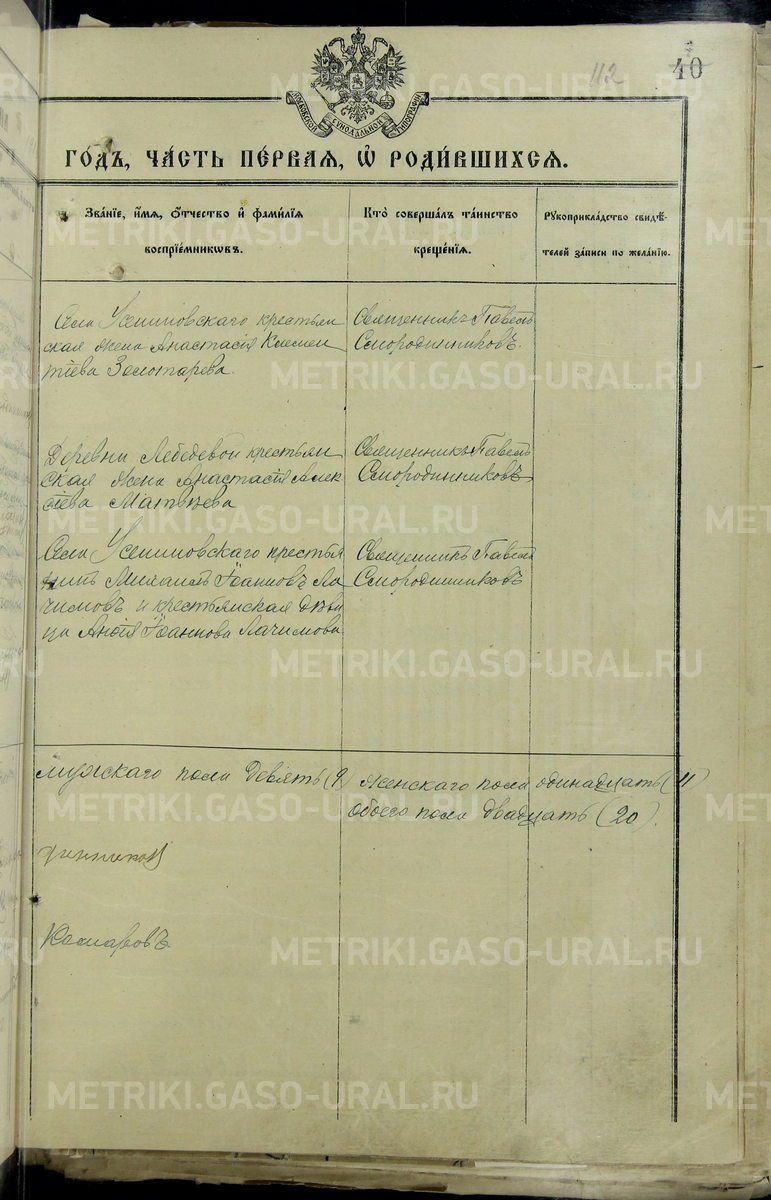 112
40
МОСКОВСКОЙ СѴНОДАЛЬНОЙ ТИПОГРАФІИ
ГО́ДЪ, ЧА́СТЬ ПЕ́РВАЯ, Ѡ҆ РОДИ́ВШИХСЯ.
Зва́нїе, и҆́мя, ѻ҆́тчество и҆ фами́лїя
воспрїе́мникѡвъ.
Кто̀ соверша́лъ та́инство
креще́нїѧ.
Рꙋкоприкла́дство свидѣ́-
телей за́писи по жела́нїю.
Села Усениновскаго крестьян
ская жена Анастасія Клемен
тіева Золотарева.
Священникъ Павелъ
Смородинниковъ.
Деревни Лебедевой крестьян
ская жена Анастасія Алек
сіева Матвѣева
Священникъ Павелъ
Смородинниковъ
Села Усениновскаго крестья
нинъ Михаилъ Іоанновъ Ла
чимовъ и крестьянская дѣви
ца Іоаннова Лачимова
Священникъ Павелъ
Смородинниковъ
мужскаго пола девять (9)
женскаго пола одинадцать (11)
обоего пола двадцать (20).
динниковъ
Комаровъ
METRIKI.GASO-URAL.RU